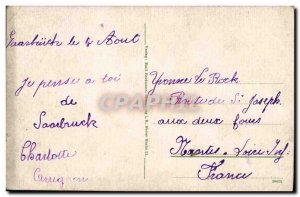 Saarbrück le 8 Août
Je pense à toi
de
Saarbruck
Charlotte
Yvonne Le Rock
Pente de St Joseph
aux deux fours
Nantes. Loire Inf.
France
CPAPHIL